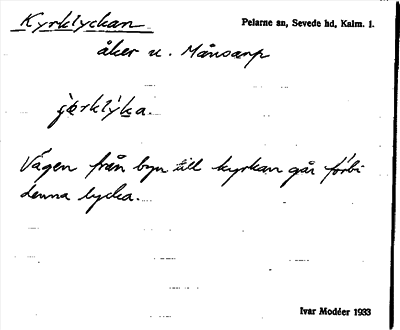 Kyrklyckan
Pelarne sn, Sevede hd, Kalm. l.
åker u. Månsarp
Vägen från byn till kyrkan går förbi
denna lycka.
Ivar Modéer 1933